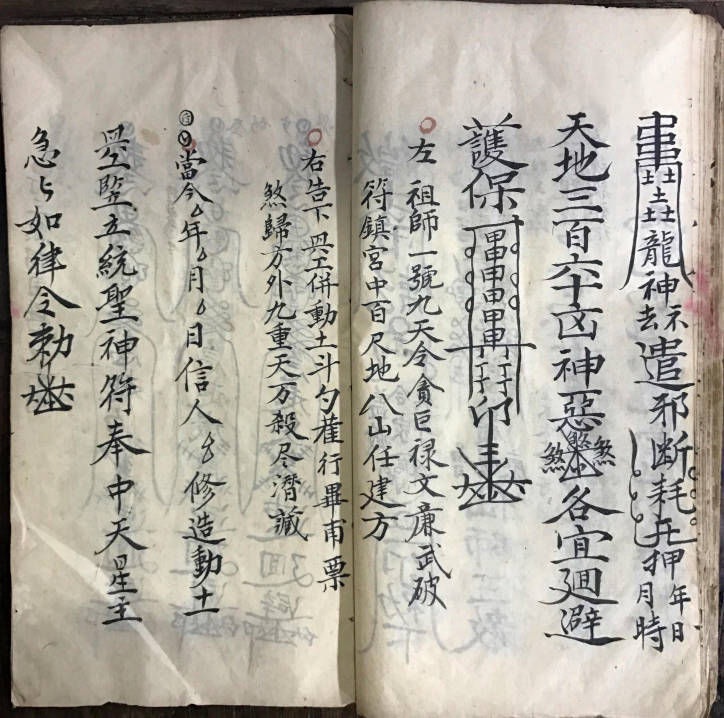 龍神 遣邪斷耗 押 年月日時
天地三百六十凶神惡煞各宜迴避
護保
左 祖師一號九天令貪巨祿文廉武破
符鎮宮中百尺地八山任建方
右告下 併動土斗勺 行畢甫票
煞歸方外九重天万殺尽潛藏
當今 年 月 日信人 修造動土
立統聖神符奉中天星主
急急如律令勅